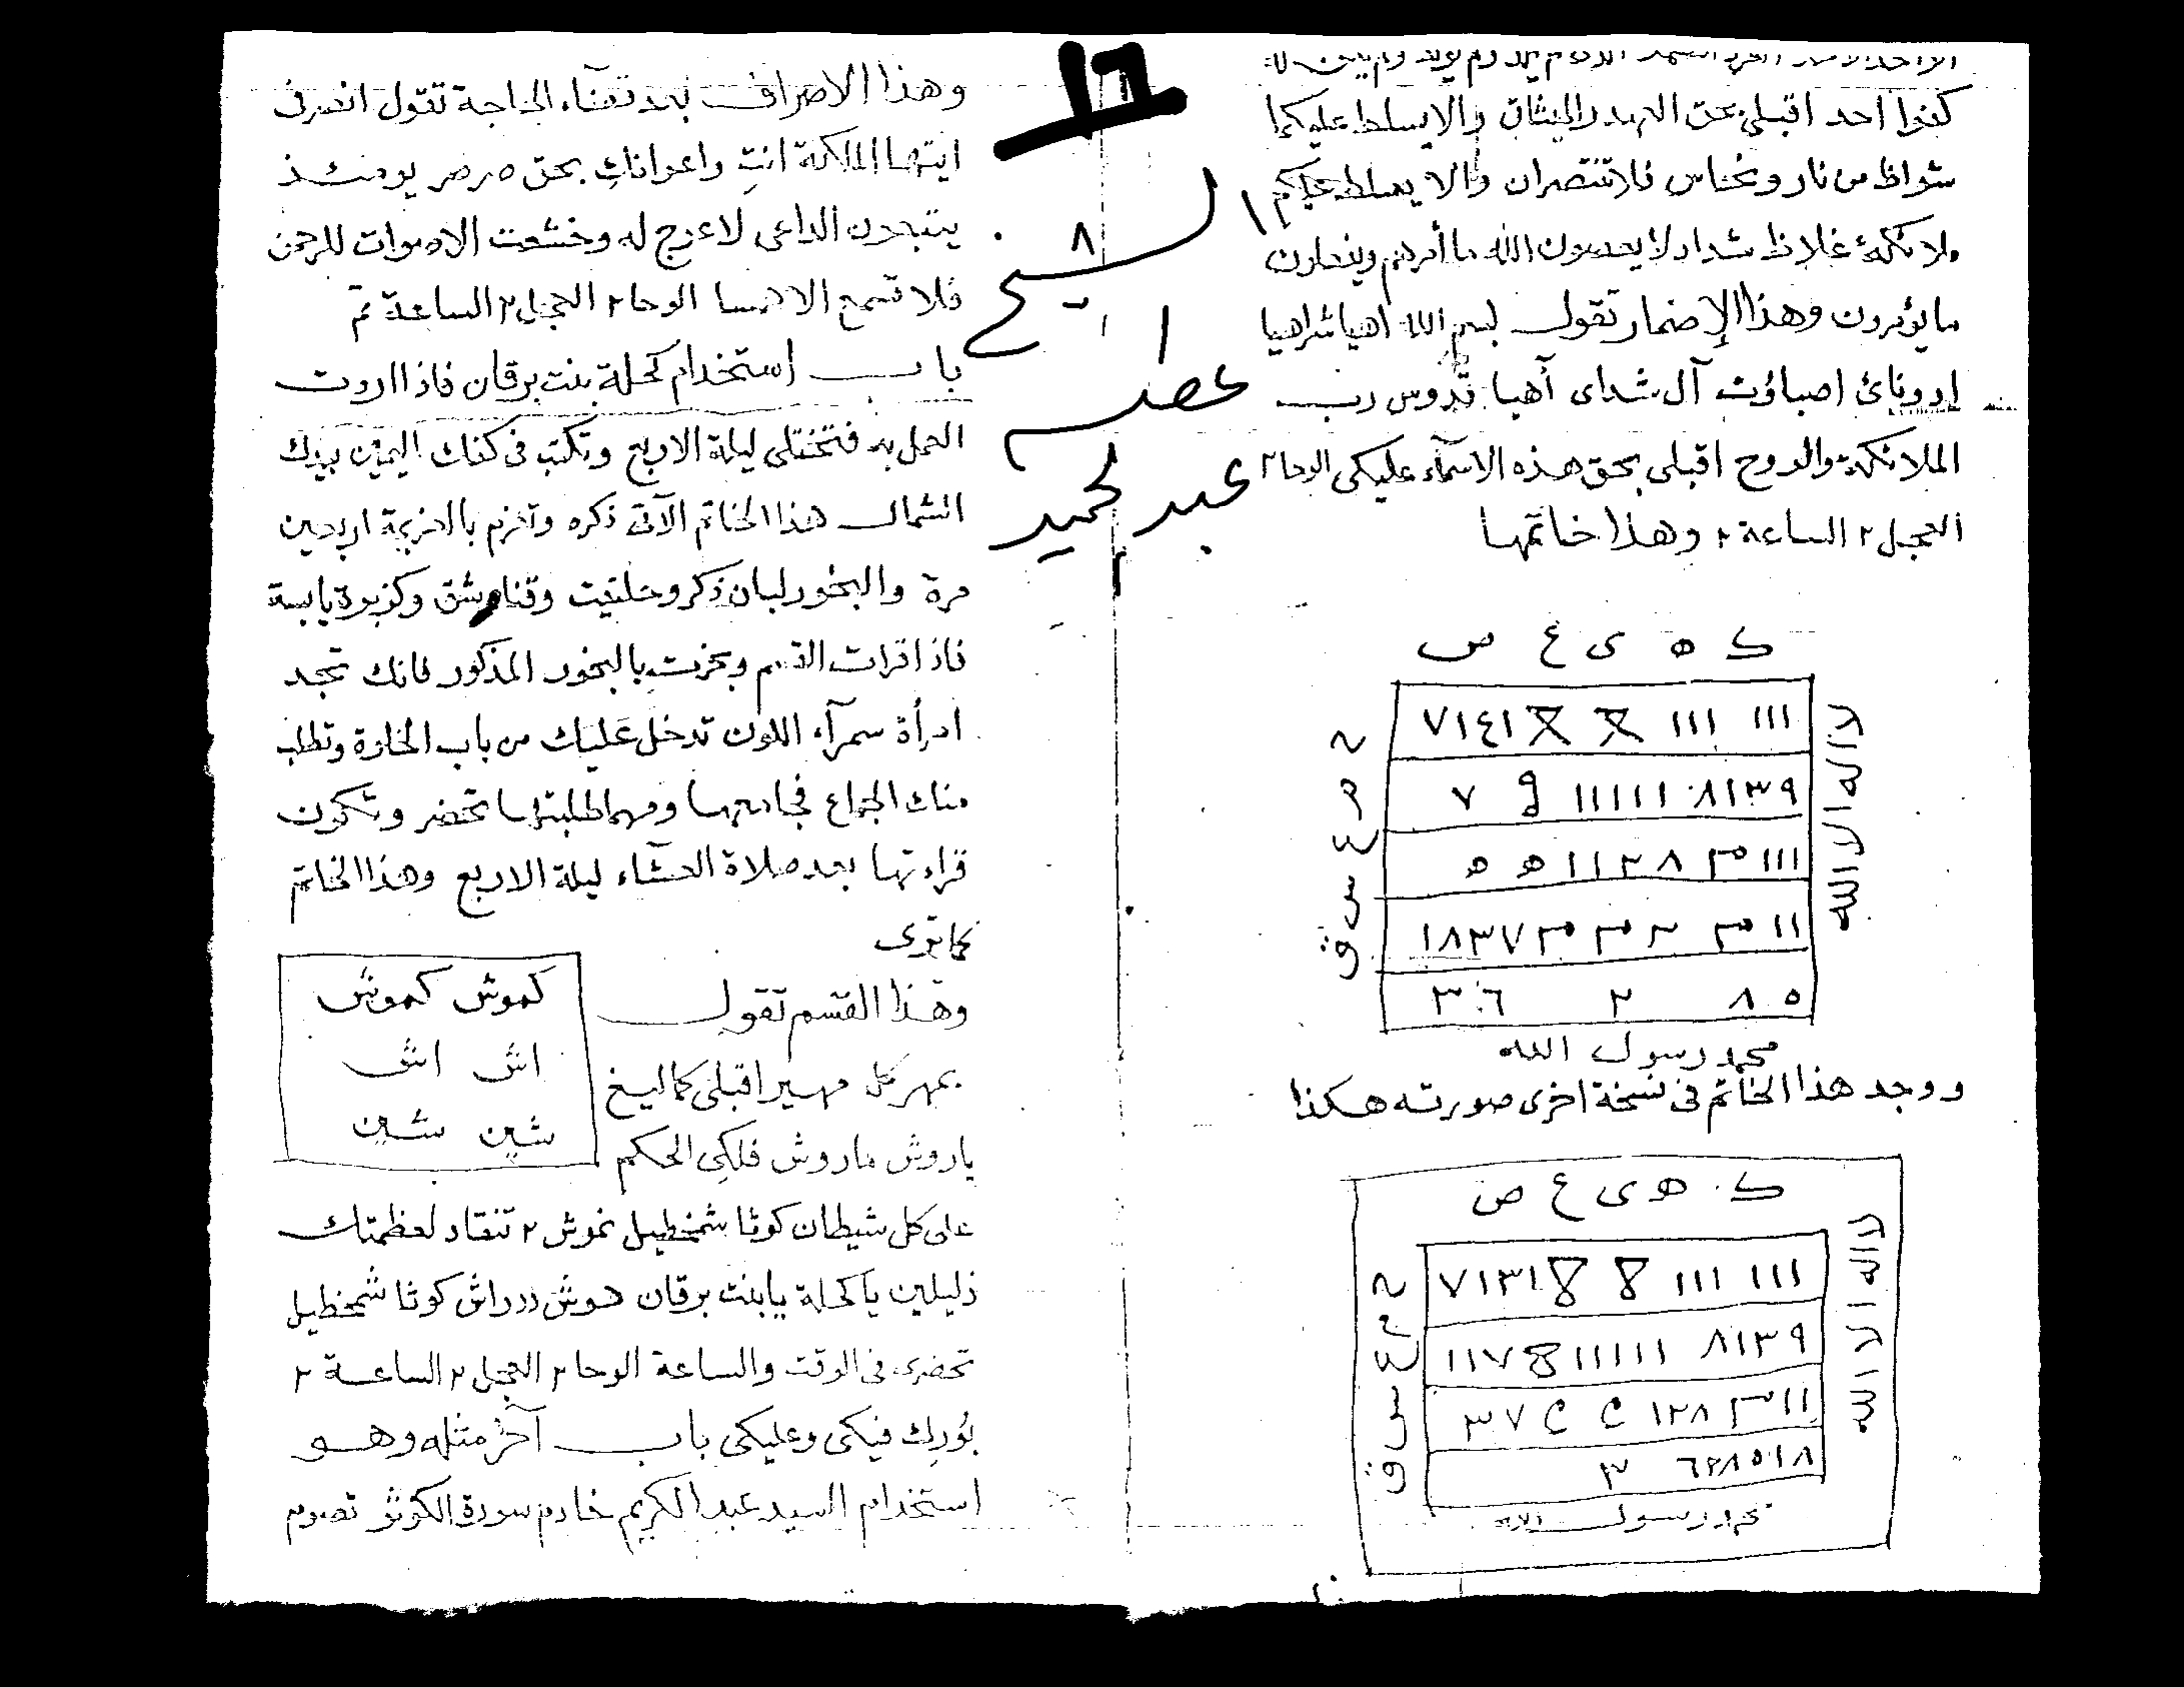 كفوا احد اقبلي بحق العهد والميثاق والا يسلط عليكما
شواظ من نار ونحاس فلا تنتصران والا يسلط عليكم
ملائكة غلاظ شداد لا يعصون الله ما أمرهم ويفعلون
ما يؤمرون وهذا الإضمار تقول بسم الله اهيا شراهيا
ادوناى اصباؤت آل شداى أهيا قدوس رب
الملائكة والروح اقبلى بحق هذه الاسمآء عليكى الوحا ٢
العجل ٢ الساعة ٢ وهذا خاتمها
ك ه ى ع ص
ااا ااا ٧١٤١
٨١٣٩ ااااا ٧
ااا ٣٨ اا ه ه
اا ١٨٣٧
٨ ٥ ٢ ٣٦
لا اله الا الله
ح م ع س ق
محمد رسول الله
ووجد هذا الخاتم فى نسخة اخرى صورته هكذا
ك ه ى ع ص
ااا ااا ٧١٣١
٨١٣٩ ااااا ١١٧
اا ١٢٨ ٣٧
٦٢٨٥١٨ ٣
لا اله الا الله
ح م ع س ق
محمد رسول الله
١٦
الشيخ
٨
عطا
عبد لحميد
وهذا الاصراف بعد قضآء الحاجة تقول انصرفى
ايتها الملكة انتِ واعوانكِ بحق يومئذ
يتبعون الداعى لا عوج له وخشعت الاصوات للرحمن
فلا تسمع الا همسا الوحا ٢ العجل ٢ الساعة تم
باب استخدام كحلة بنت برقان فاذا اردت
العمل به فتختلى ليلة الاربع وتكتب فى كفك اليمين بيدك
الشمال هذا الخاتم الآتى ذكره وتعزم بالعزيمة اربعين
مرة والبخور لبان ذكر وحلتيت وقناوشق وكزبرة يابسة
فاذا قرات القسم وبخرت بالبخور المذكور فانك تجد
امرأة سمرآء اللون تدخل عليك من باب الخلوة وتطلب
منك الجماع فجامعها ومهما طلبتها تحضر وتكون
قراءتها بعد صلاة العشاء ليلة الاربع وهذا الخاتم
كما ترى
كموش كموش
اش اش
شين شين
وهذا القسم تقول
بمهركل مهير اقبلى كماليغ
ياروش ماروش فلكِى الحكم
على كل شيطان كوثا شمخطيل نموش ٢ تنقاد لعظمتك
ذليلين يا كحلة يا بنت برقان هوش دراش كوثا شمخطيل
تحضرى فى الوقت والساعة الوحا ٢ العجل ٢ الساعة ٢
بُورِك فيكى وعليكى باب آخر مثله وهو
استخدام السيد عبد الكريم خادم سورة الكوثر تصوم